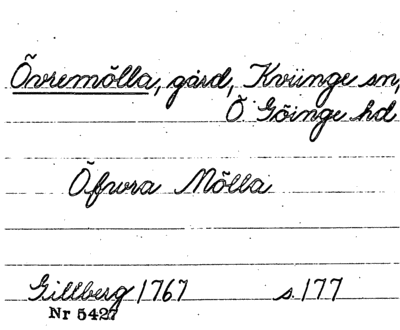 Övremölla, gård, Kviinge sn,
Ö. Göinge hd
Öfvra Mölla
Gillberg 1767 s. 177
Nr 5427